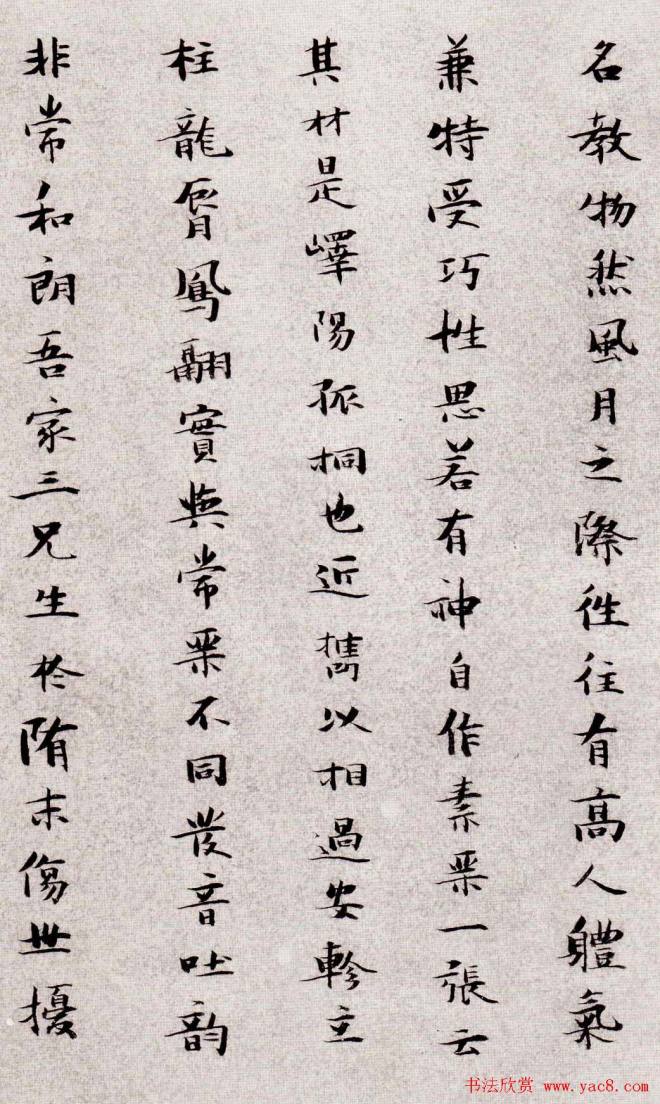 名教物然風月之際往往有高人體氣
兼特受巧性思若有神自作素琴一張云
其材是嶧陽孤桐也近攜以相過安軫立
柱龍脣鳳翮實與常琴不同發音吐韵
非常和朗吾家三兄生於隋末傷世擾
书法欣赏 www.yac8.com